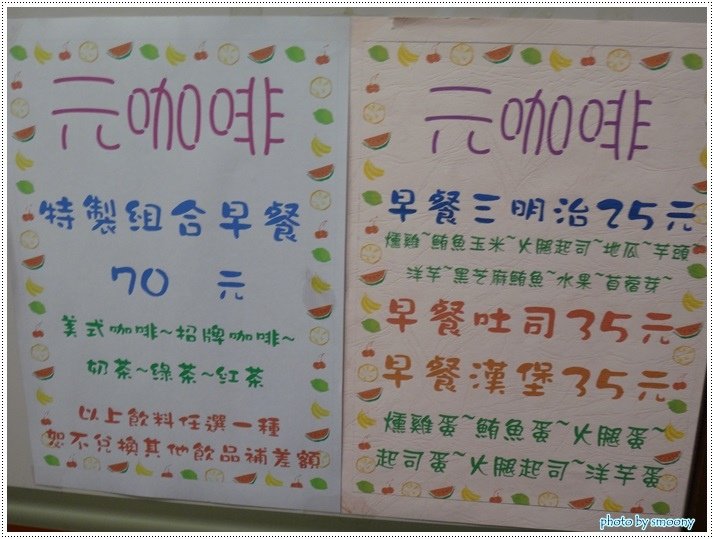 元咖啡
特製組合早餐
70 元
美式咖啡~招牌咖啡~
奶茶~綠茶~紅茶
以上飲料任選一種
恕不兌換其他飲品補差額
元咖啡
早餐三明治25元
燻雞~鮪魚玉米~火腿起司~地瓜~芋頭~
洋芋~黑芝麻鮪魚~水果~苜蓿芽~
早餐吐司35元
早餐漢堡35元
燻雞蛋~鮪魚蛋~火腿蛋~
起司蛋~火腿起司~洋芋蛋
photo by smoony